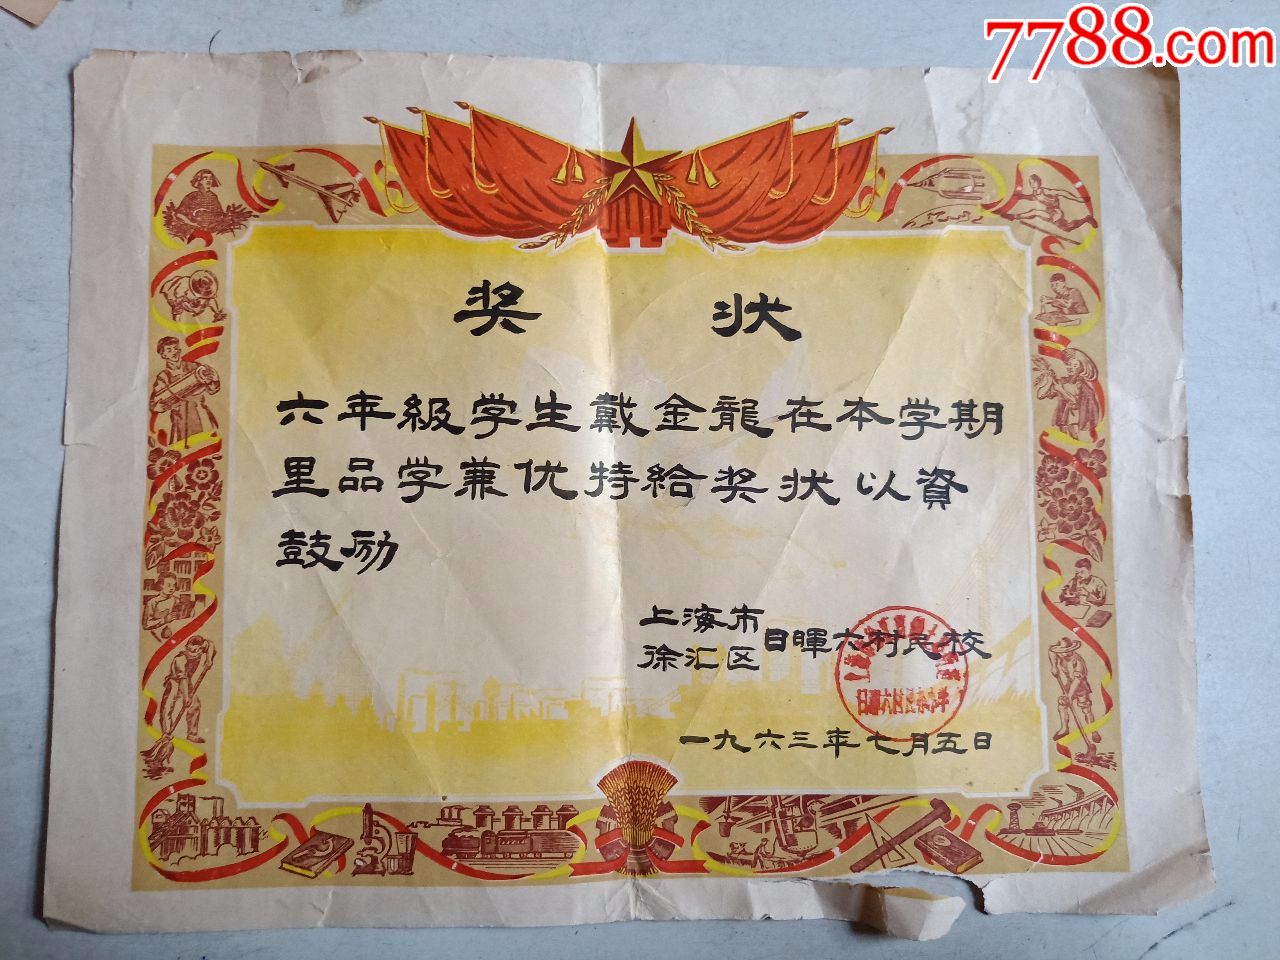 7788.com
奖状
六年級学生戴金龍在本学期
里品学兼优特給奖状以資
鼓励
上海市
徐汇区
日暉六村民校
一九六三年七月五日